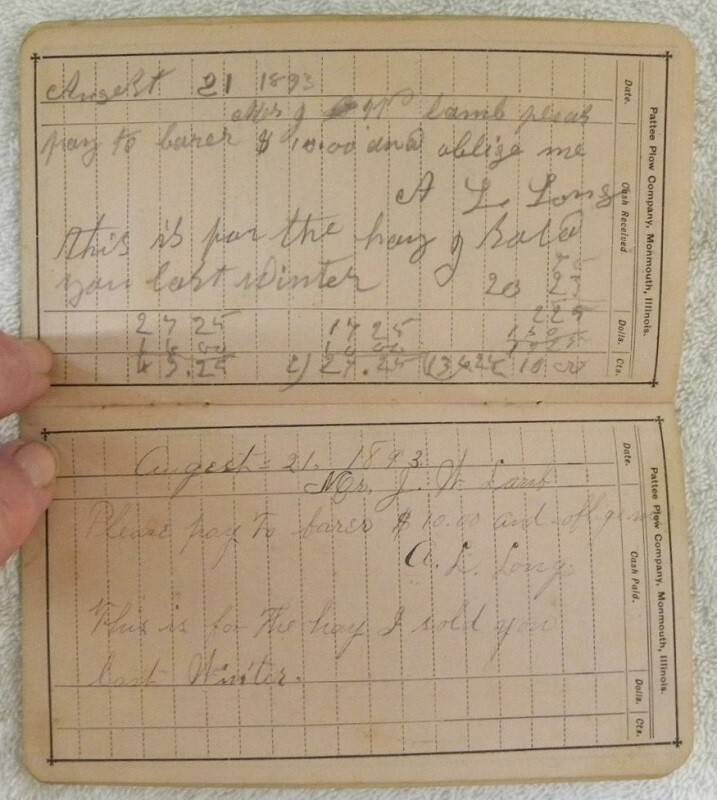 Angest 21 1893
Mr J W lamb pleas
pay to barer $ 10.00 and oblige me
A L Long
this is for the hay J sold
you last winter 20 25
225
27 25 14 25 150
16 00 10 00
43.25 2) 27.25 (13.62 10 00
Date. Cash Received Dolls. Cts.
Pattee Plow Company, Monmouth, Illinois.
Augest = 21. 1893
Mr. J. W Lamb
Please pay to barer $ 10.00 and
A. L. Long
This is for the hay I sold you
last Winter.
Date. Cash Paid. Dolls. Cts.
Pattee Plow Company, Monmouth, Illinois.